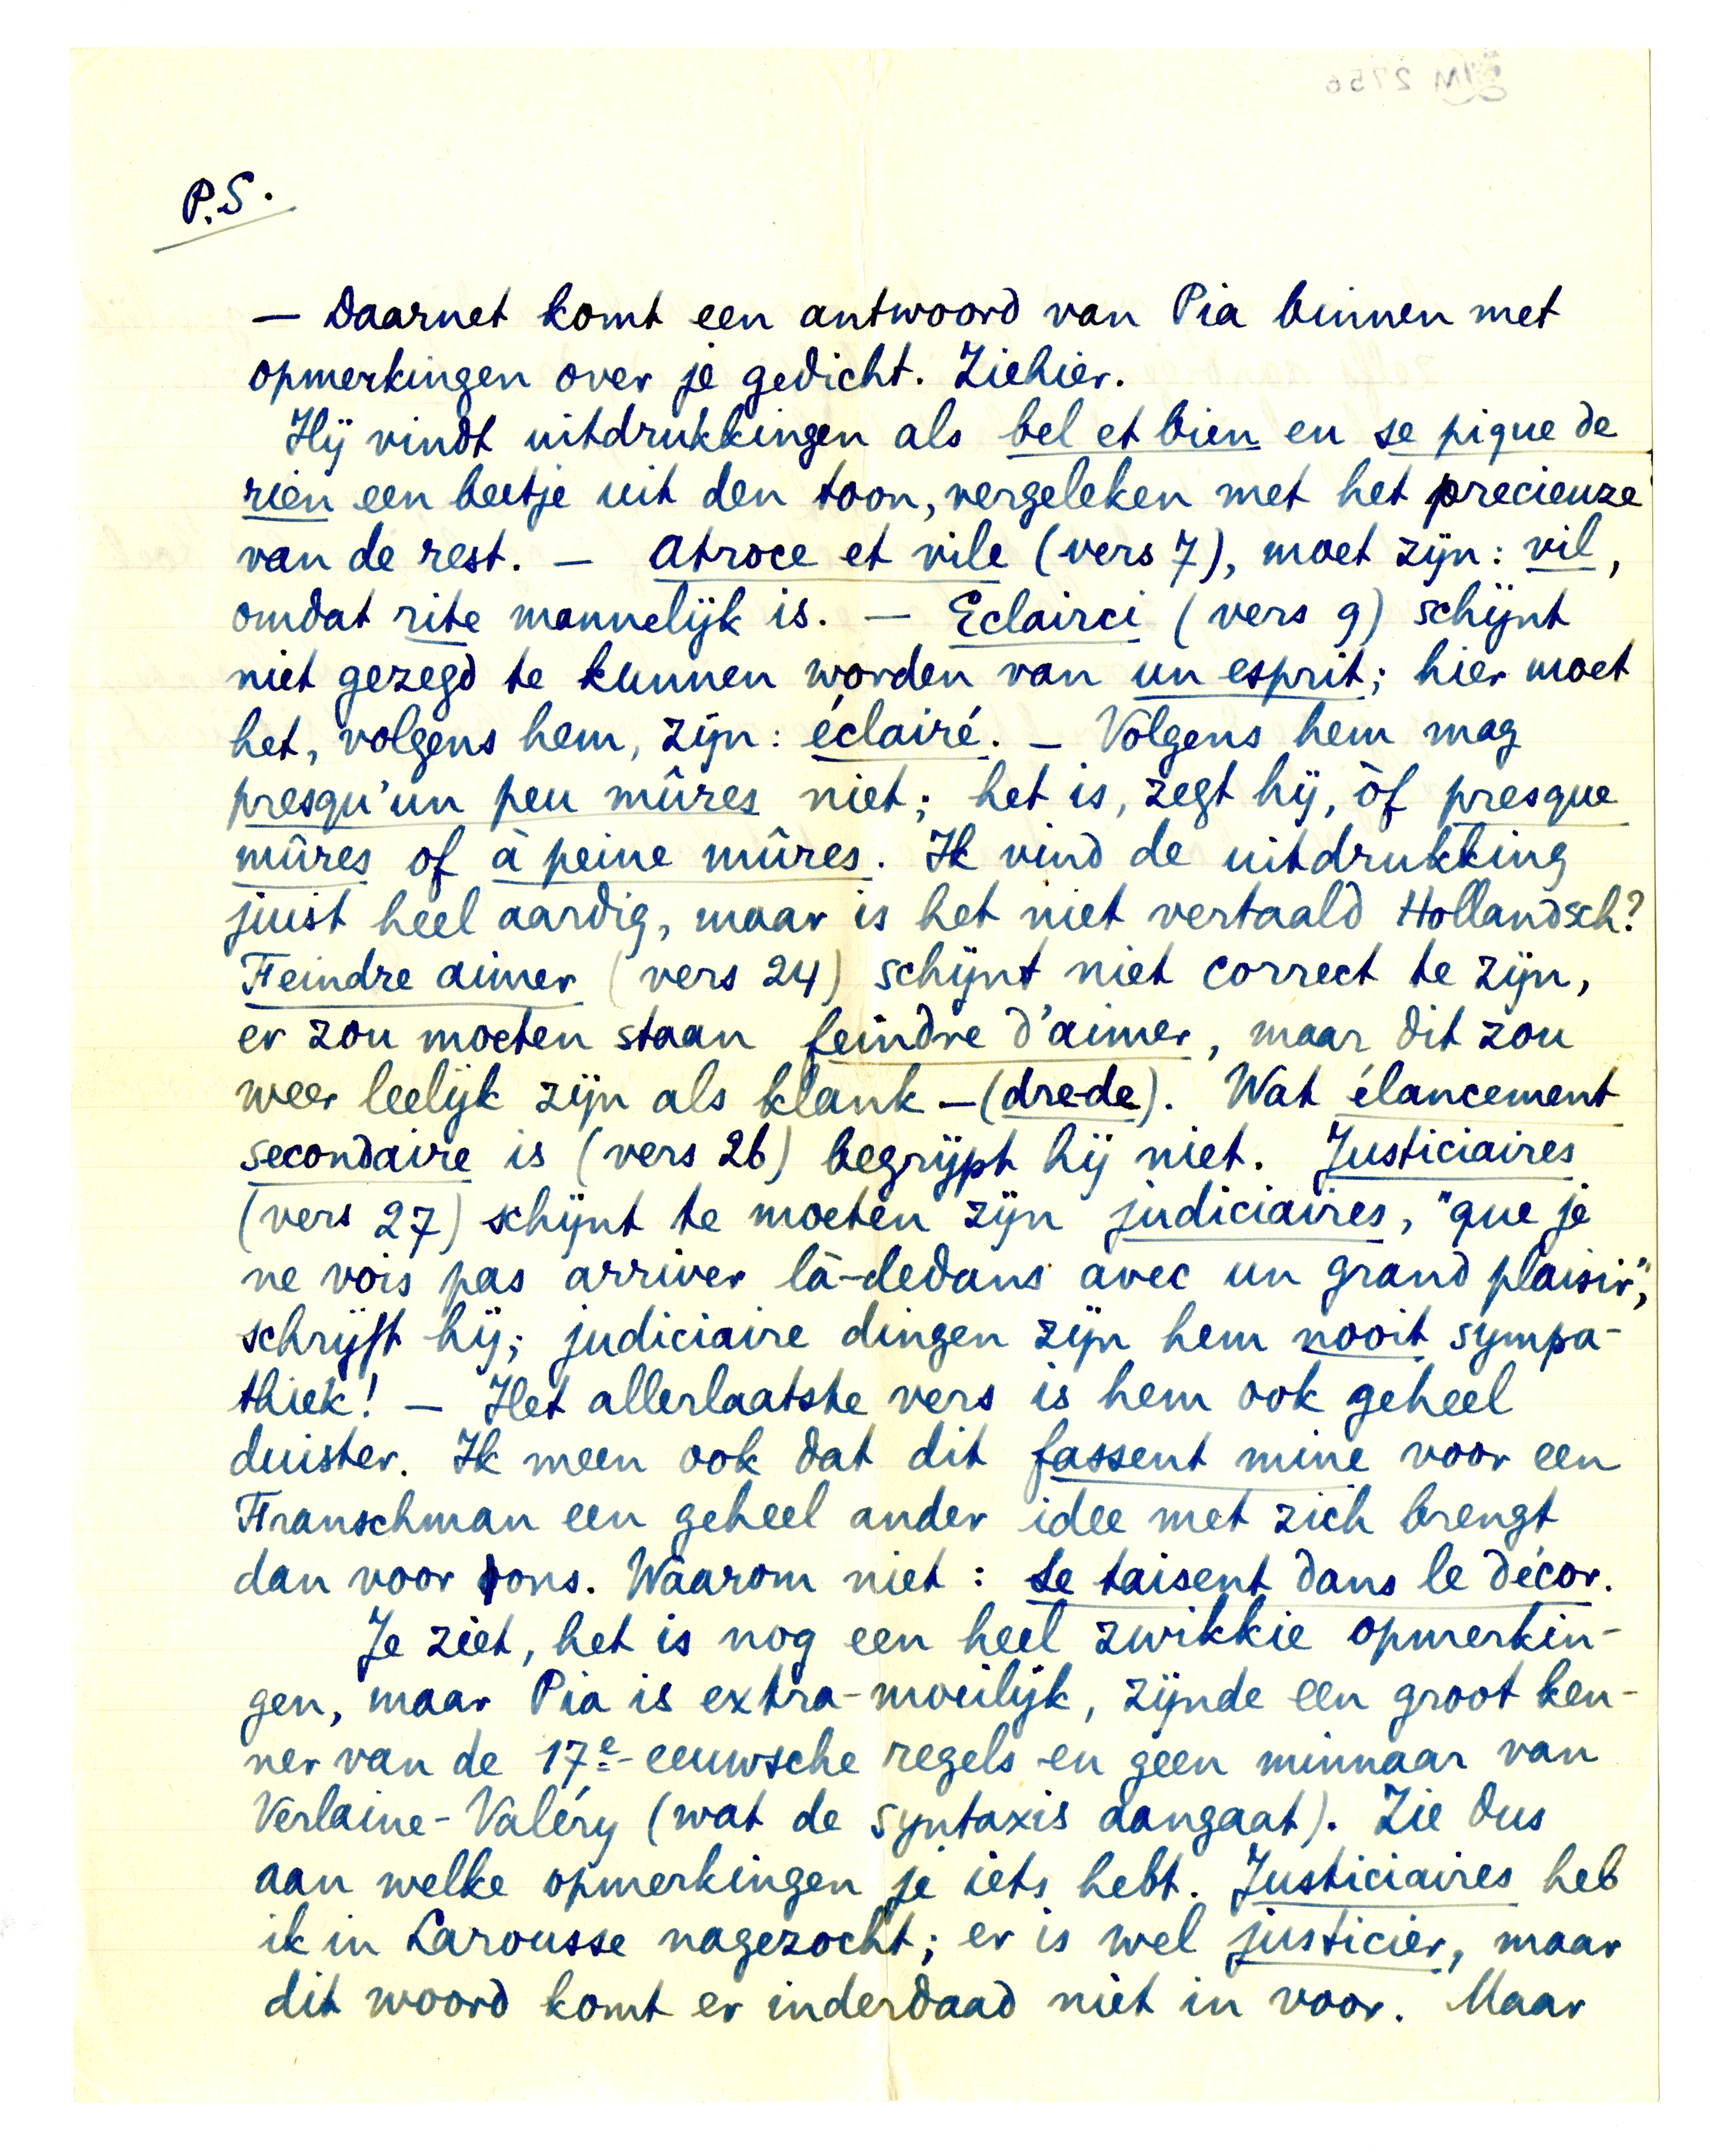 P.S.
— Daarnet komt een antwoord van Pia binnen met
opmerkingen over je gedicht. Ziehier.
Hij vindt uitdrukkingen als bel et bien en se pique de
rien een beetje uit den toon, vergeleken met het precieuze
van de rest. — Atroce et vile (vers 7), moet zijn: vil,
omdat rite mannelijk is. — Eclairci (vers 9) schijnt
niet gezegd te kunnen worden van un esprit; hier moet
het, volgens hem, zijn: éclairé. — Volgens hem mag
presqu'un peu mûres niet; het is, zegt hij, òf presque
mûres of à peine mûres. Ik vind de uitdrukking
juist heel aardig, maar is het niet vertaald Hollandsch?
Feindre aimer (vers 24) schijnt niet correct te zijn,
er zou moeten staan feindre d'aimer, maar dit zou
weer leelijk zijn als klank — (drede). Wat élancement
secondaire is (vers 26) begrijpt hij niet. Justiciaires
(vers 27) schijnt te moeten zijn judiciaires, "que je
ne vois pas arriver là-dedans avec un grand plaisir",
schrijft hij; judiciaire dingen zijn hem nooit sympa-
thiek! — Het allerlaatste vers is hem ook geheel
duister. Ik meen ook dat dit fassent mine voor een
Franschman een geheel ander idee met zich brengt
dan voor ons. Waarom niet: Se taisent dans le décor.
Je ziet, het is nog een heel zwikkie opmerkin-
gen, maar Pia is extra-moeilijk, zijnde een groot ken-
ner van de 17e-eeuwsche regels en geen minnaar van
Verlaine-Valéry (wat de syntaxis aangaat). Zie dus
aan welke opmerkingen je iets hebt. Justiciaires heb
ik in Larousse nagezocht; er is wel justicier, maar
dit woord komt er inderdaad niet in voor. Maar